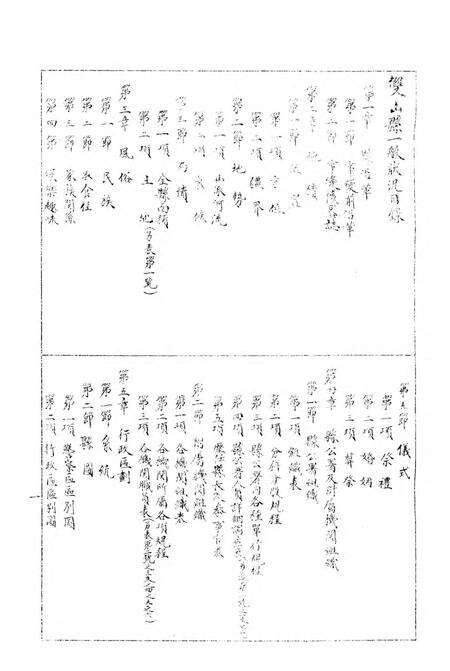 雙山縣一般狀況目錄
第一章 縣沿革
第一節 市變前沿革
第二節
第二章 地情
第一節 位置
第一項 方位
第二項 彊界
第二節 地勢
第一項 山脈河流
第二項 氣候
第三節 面積
第一項 全縣面積
第二項 土地(另表第一覽)
第三章 風俗
第一節 民族
第二節 衣食住
第三節 家族關係
第四節 娛樂趣味
第五節 儀式
第一項 祭禮
第二項 婚姻
第三項 葬祭
第四章 縣公署及附屬機関組織
第一節 縣公署組織
第一項 組織表
第二項 分科辦事規程
第三項 縣公署內各種單行規程
第四項 縣公署人員詳細
第五項 歷任縣長
第二節 附屬機関組織
第一項 各機関組織表
第二項 各機関所屬各項規程
第三項 各機関職員表
第五章 行政區劃
第一節 系統
第二節 縣圖
第一項 警察區區別圖
第二項 行政區區別圖